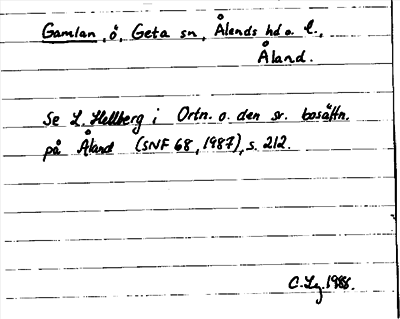 Gamlan, ö, Geta sn, Ålands hd o. l.,
Åland.
Se L. Hellberg i Ortn. o. den sv. bosättn.
på Åland (SNF 68, 1987), s. 212.
1988.